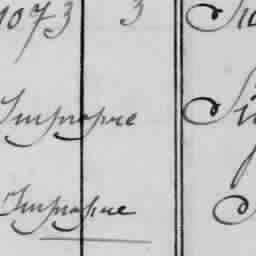 1073 3
Impropre
Impropre